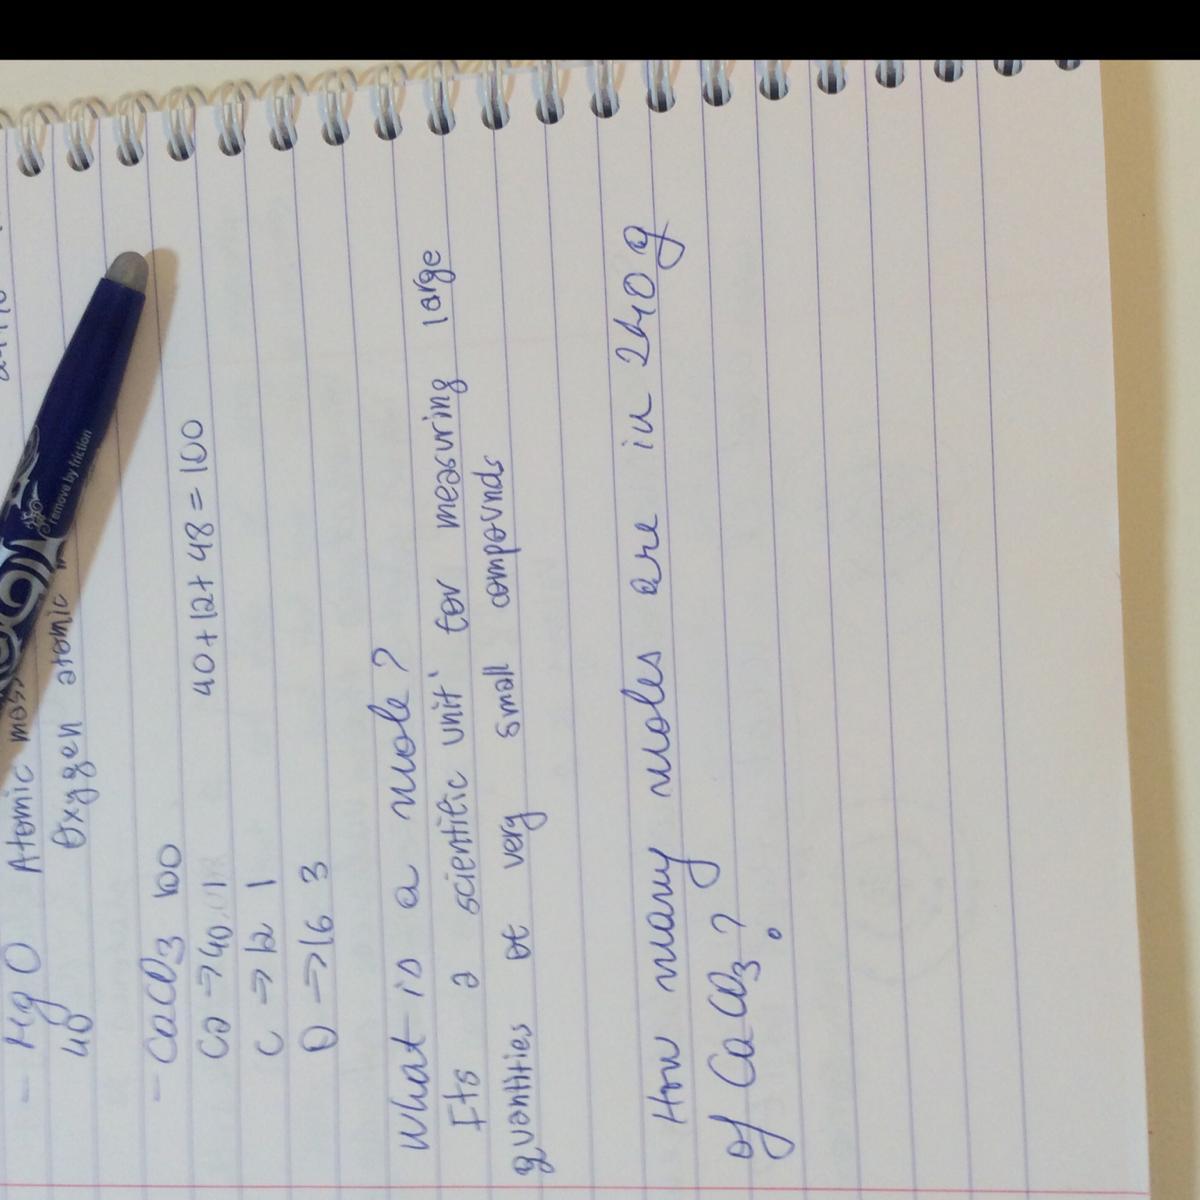 - MgO Atomic
40 Oxygen atomic
remove by friction
- CaCO3 100
Ca → 40 1 40 + 12 + 48 = 100
C → 12 1
O → 16 3
What is a mole?
Its a scientific unit' for measuring large
quantities of very small compounds
How many moles are in 240 g
of CaCO3?